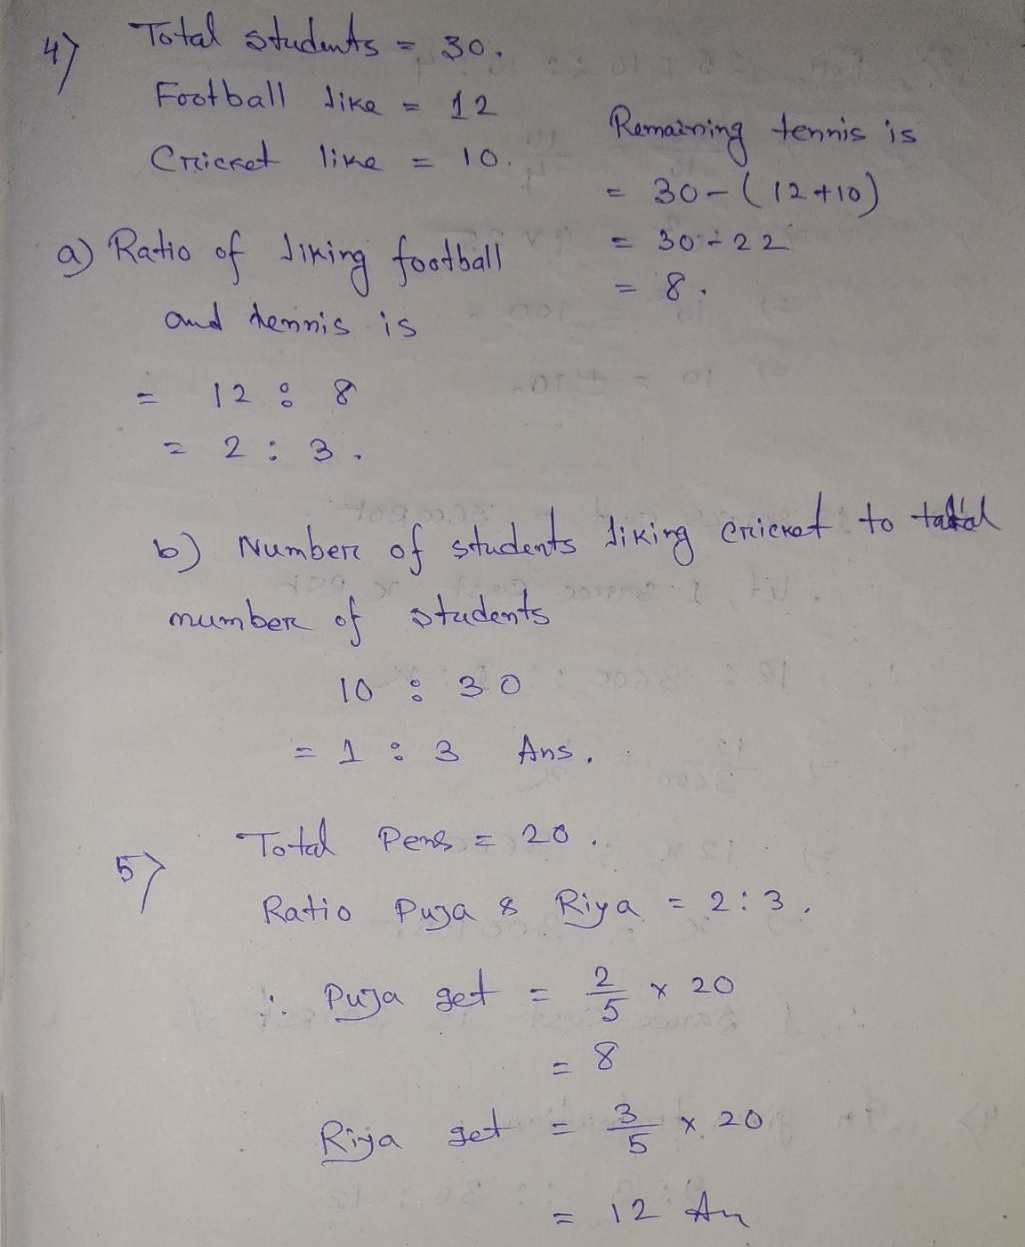 4) Total students = 30.
Football like = 12
Cricket like = 10.
Remaining tennis is
= 30 - (12+10)
= 30 - 22
= 8.
a) Ratio of liking football
and tennis is
= 12 : 8
= 2 : 3.
b) Number of students liking cricket to total
number of students
10 : 30
= 1 : 3 Ans.
5) Total Pens = 20.
Ratio Puja & Riya = 2:3.
∴ Puja get = 2/5 × 20
= 8
Riya get = 3/5 × 20
= 12 An